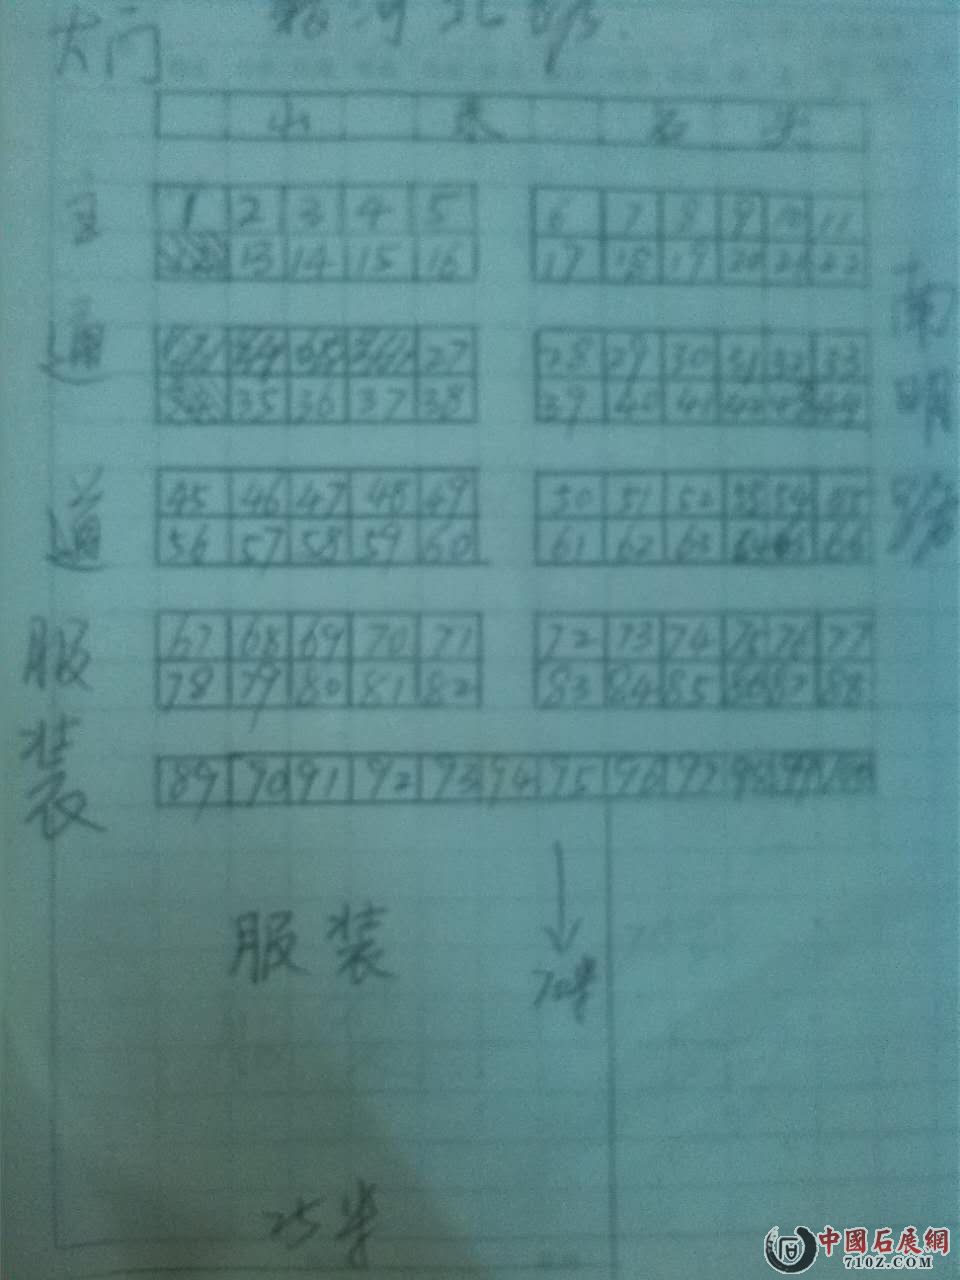 大门
山 东 石 头
1 2 3 4 5 6 7 8 9 10 11
13 14 15 16 17 18 19 20 21 22
27 28 29 30 31 32 33
35 36 37 38 39 40 41 42 43 44
45 46 47 48 49 50 51 52 53 54 55
56 57 58 59 60 61 62 63 64 65 66
67 68 69 70 71 72 73 74 75 76 77
78 79 80 81 82 83 84 85 86 87 88
89 90 91 92 93 94 95 96 97 98 99 100
主通道
服装
南明路
服装
70米
25米
中國石展網
710Z.COM